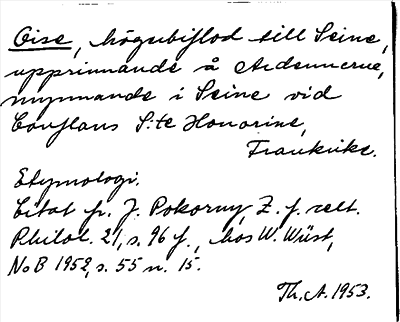 Oise, högerbiflod till Seine,
upprinnande å Ardennerne,
mynnande i Seine vid
Conflans S:te Honorine,
Frankrike.
Etymologi.
Citat fr. J. Pokorny, Z. f. celt.
Philol. 21, s. 96 f., hos W. Wüst,
NoB 1952, s. 55 n. 15.
Th. A. 1953.